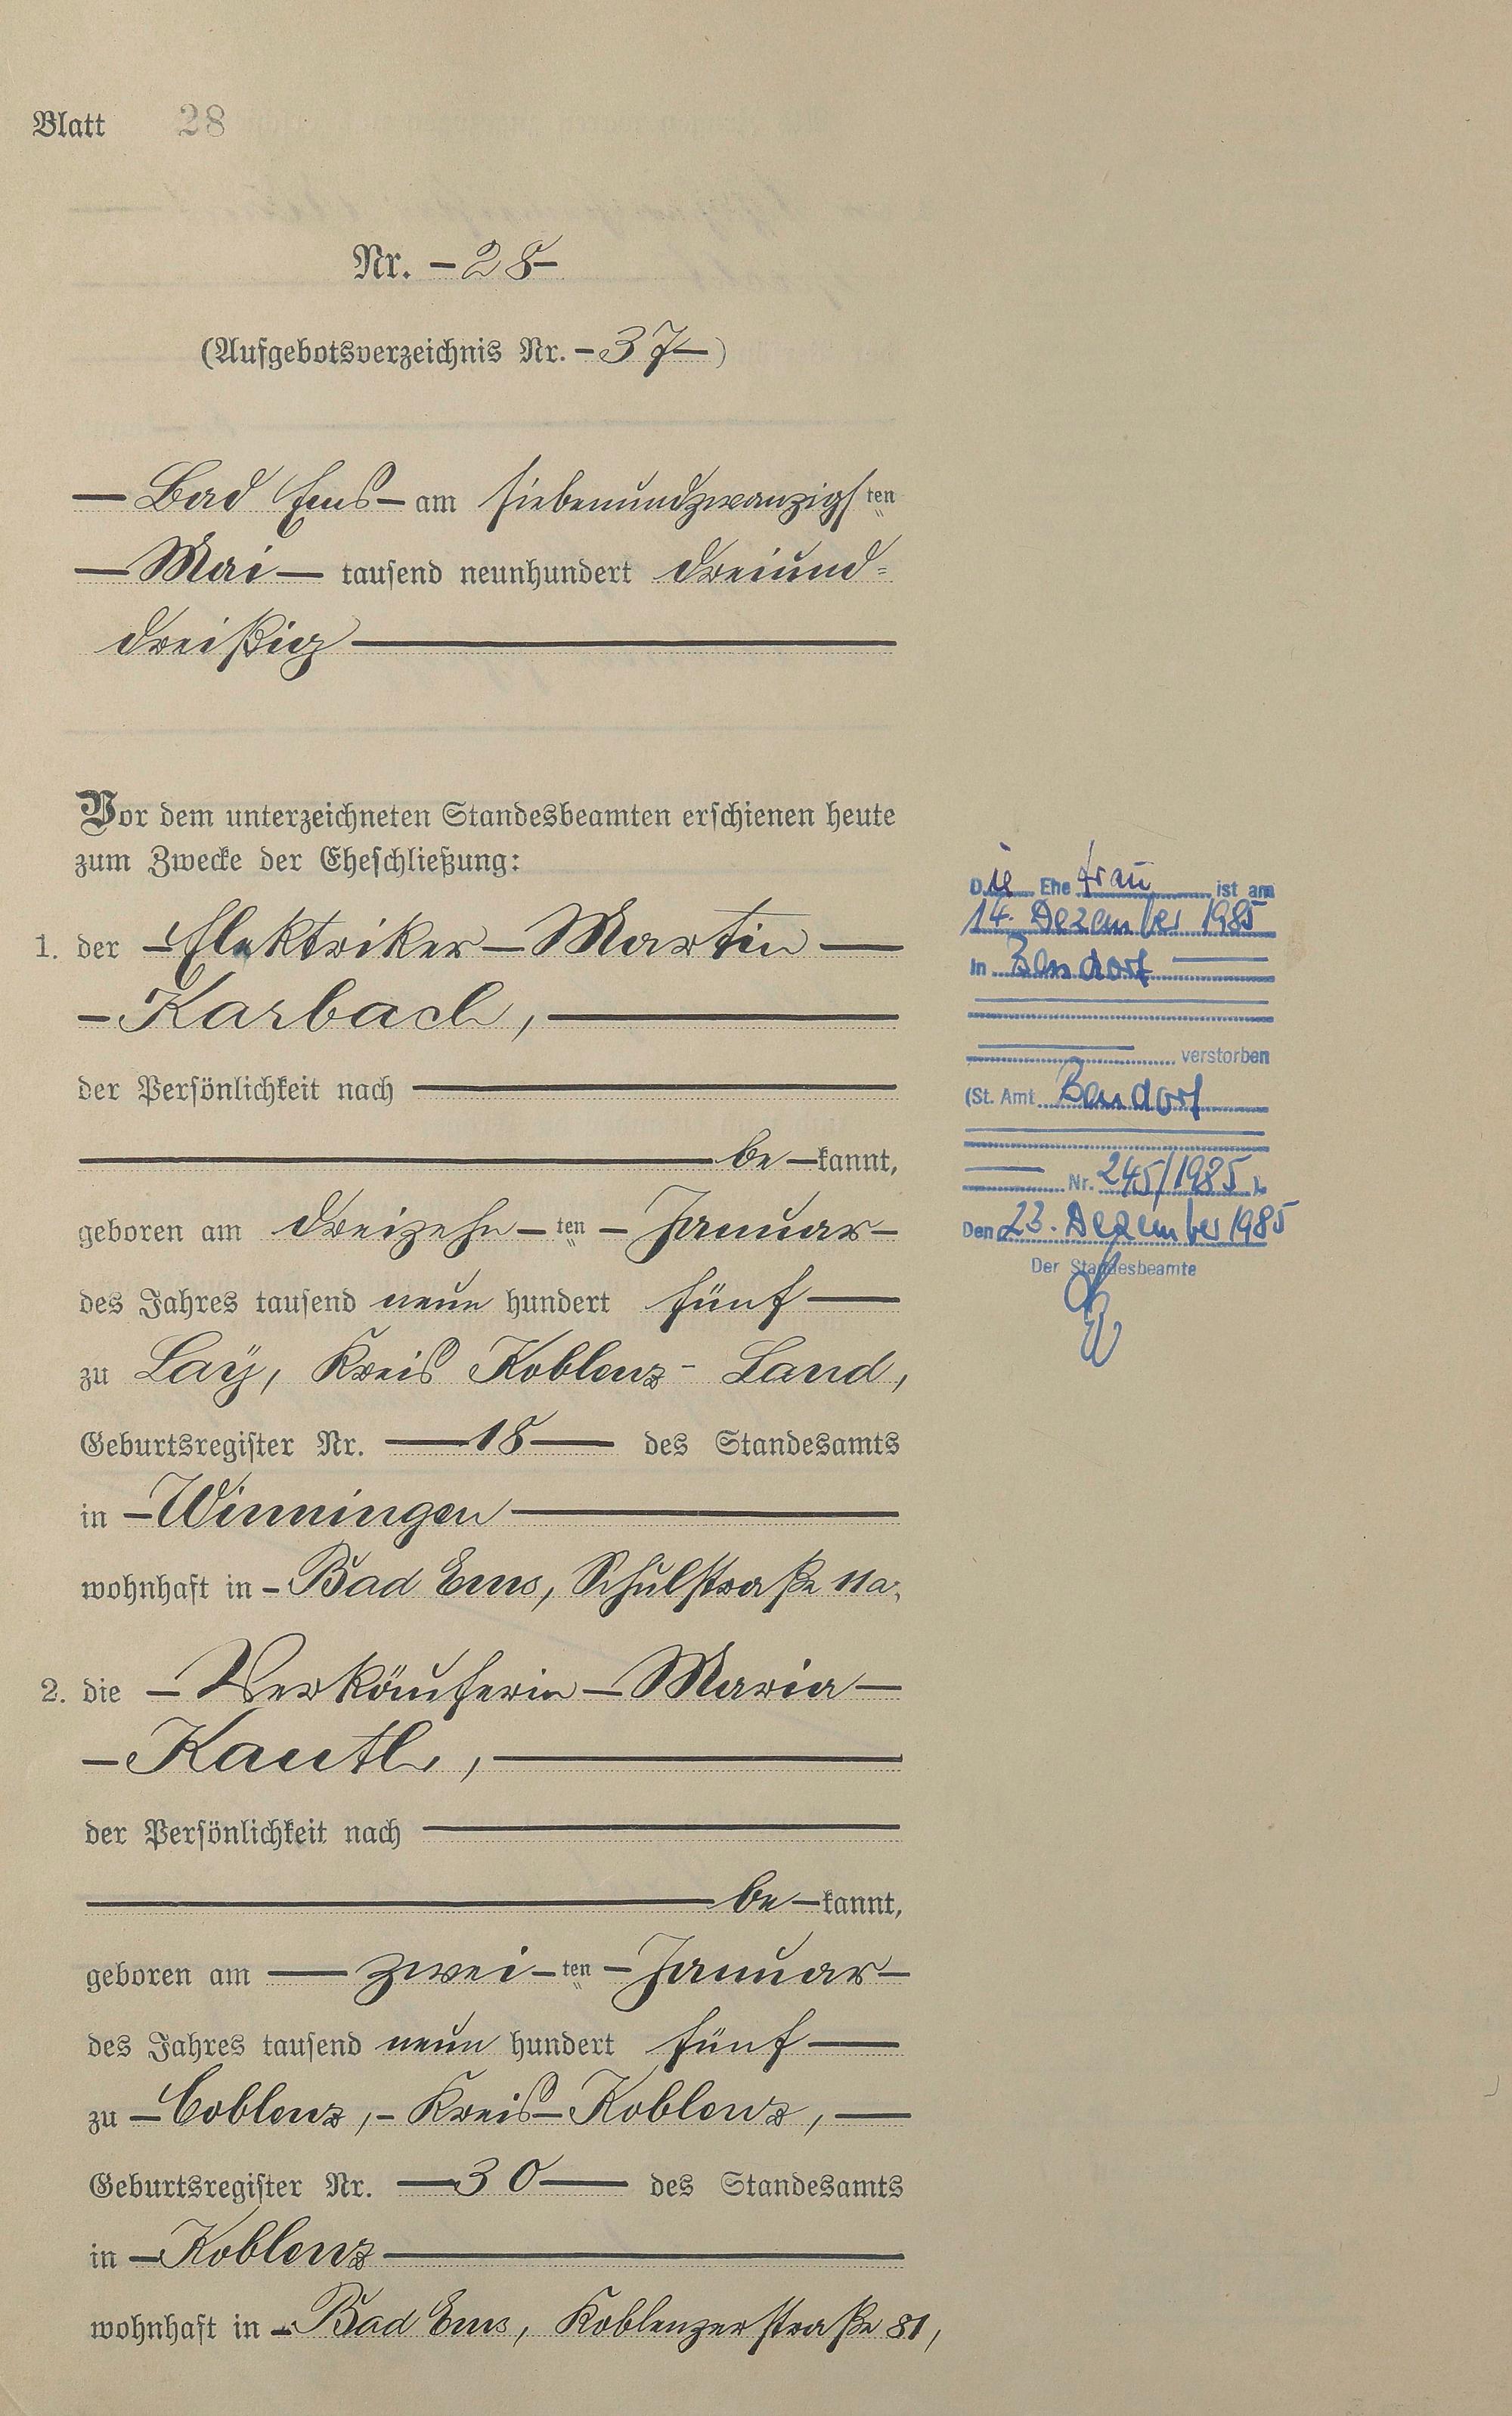 Blatt 28
Nr. — 28 —
(Aufgebotsverzeichnis Nr. — 37 —)
— Bad Ems — am siebenundzwanzigsten
— Mai — tausend neunhundert dreiund=
dreißig —
Vor dem unterzeichneten Standesbeamten erschienen heute
zum Zwecke der Eheschließung:
1. der — Elektriker — Martin —
— Karbach, —
der Persönlichkeit nach —
— be — kannt,
geboren am dreizehn — ten — Januar —
des Jahres tausend neun hundert fünf —
zu Laÿ, Kreis Koblenz - Land,
Geburtsregister Nr. — 18 — des Standesamts
in — Winningen —
wohnhaft in — Bad Ems, Schulstraße 11a,
2. die — Verkäuferin — Maria —
— Kauth, —
der Persönlichkeit nach —
— be — kannt,
geboren am — zwei — ten — Januar —
des Jahres tausend neun hundert fünf —
zu — Coblenz, — Kreis — Koblenz, —
Geburtsregister Nr. — 30 — des Standesamts
in — Koblenz —
wohnhaft in — Bad Ems, Koblenzerstraße 81,
Die Ehefrau ist am
14. Dezember 1985
in Bendorf —
— verstorben
(St. Amt Bendorf
— Nr. 245/1985).
Den 23. Dezember 1985
Der Standesbeamte